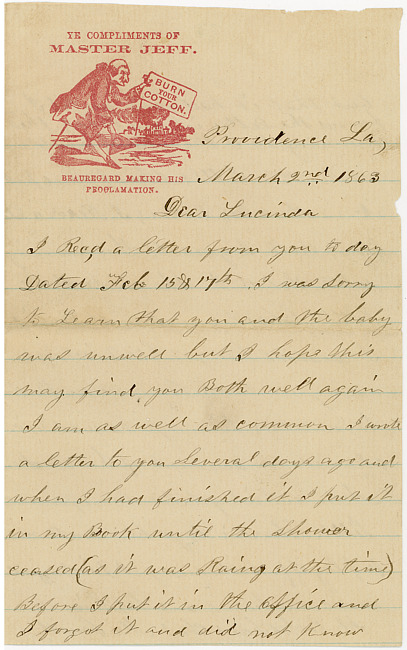 YE COMPLIMENTS OF
MASTER JEFF.
BURN
YOUR
COTTON.
BEAUREGARD MAKING HIS
PROCLAMATION.
Providence La,
March 2nd 1863
Dear Lucinda
I Recd a letter from you to day
Dated Feb 15 & 17th. I was sorry
to Learn that you and the baby
was unwell but I hope this
may find you Both well again
I am as well as common I wrote
a letter to you Several days ago and
when I had finished it I put it
in my Book until the Shower
ceased (as it was Raing at the time)
Before I put it in the office and
I forgot it and did not Know